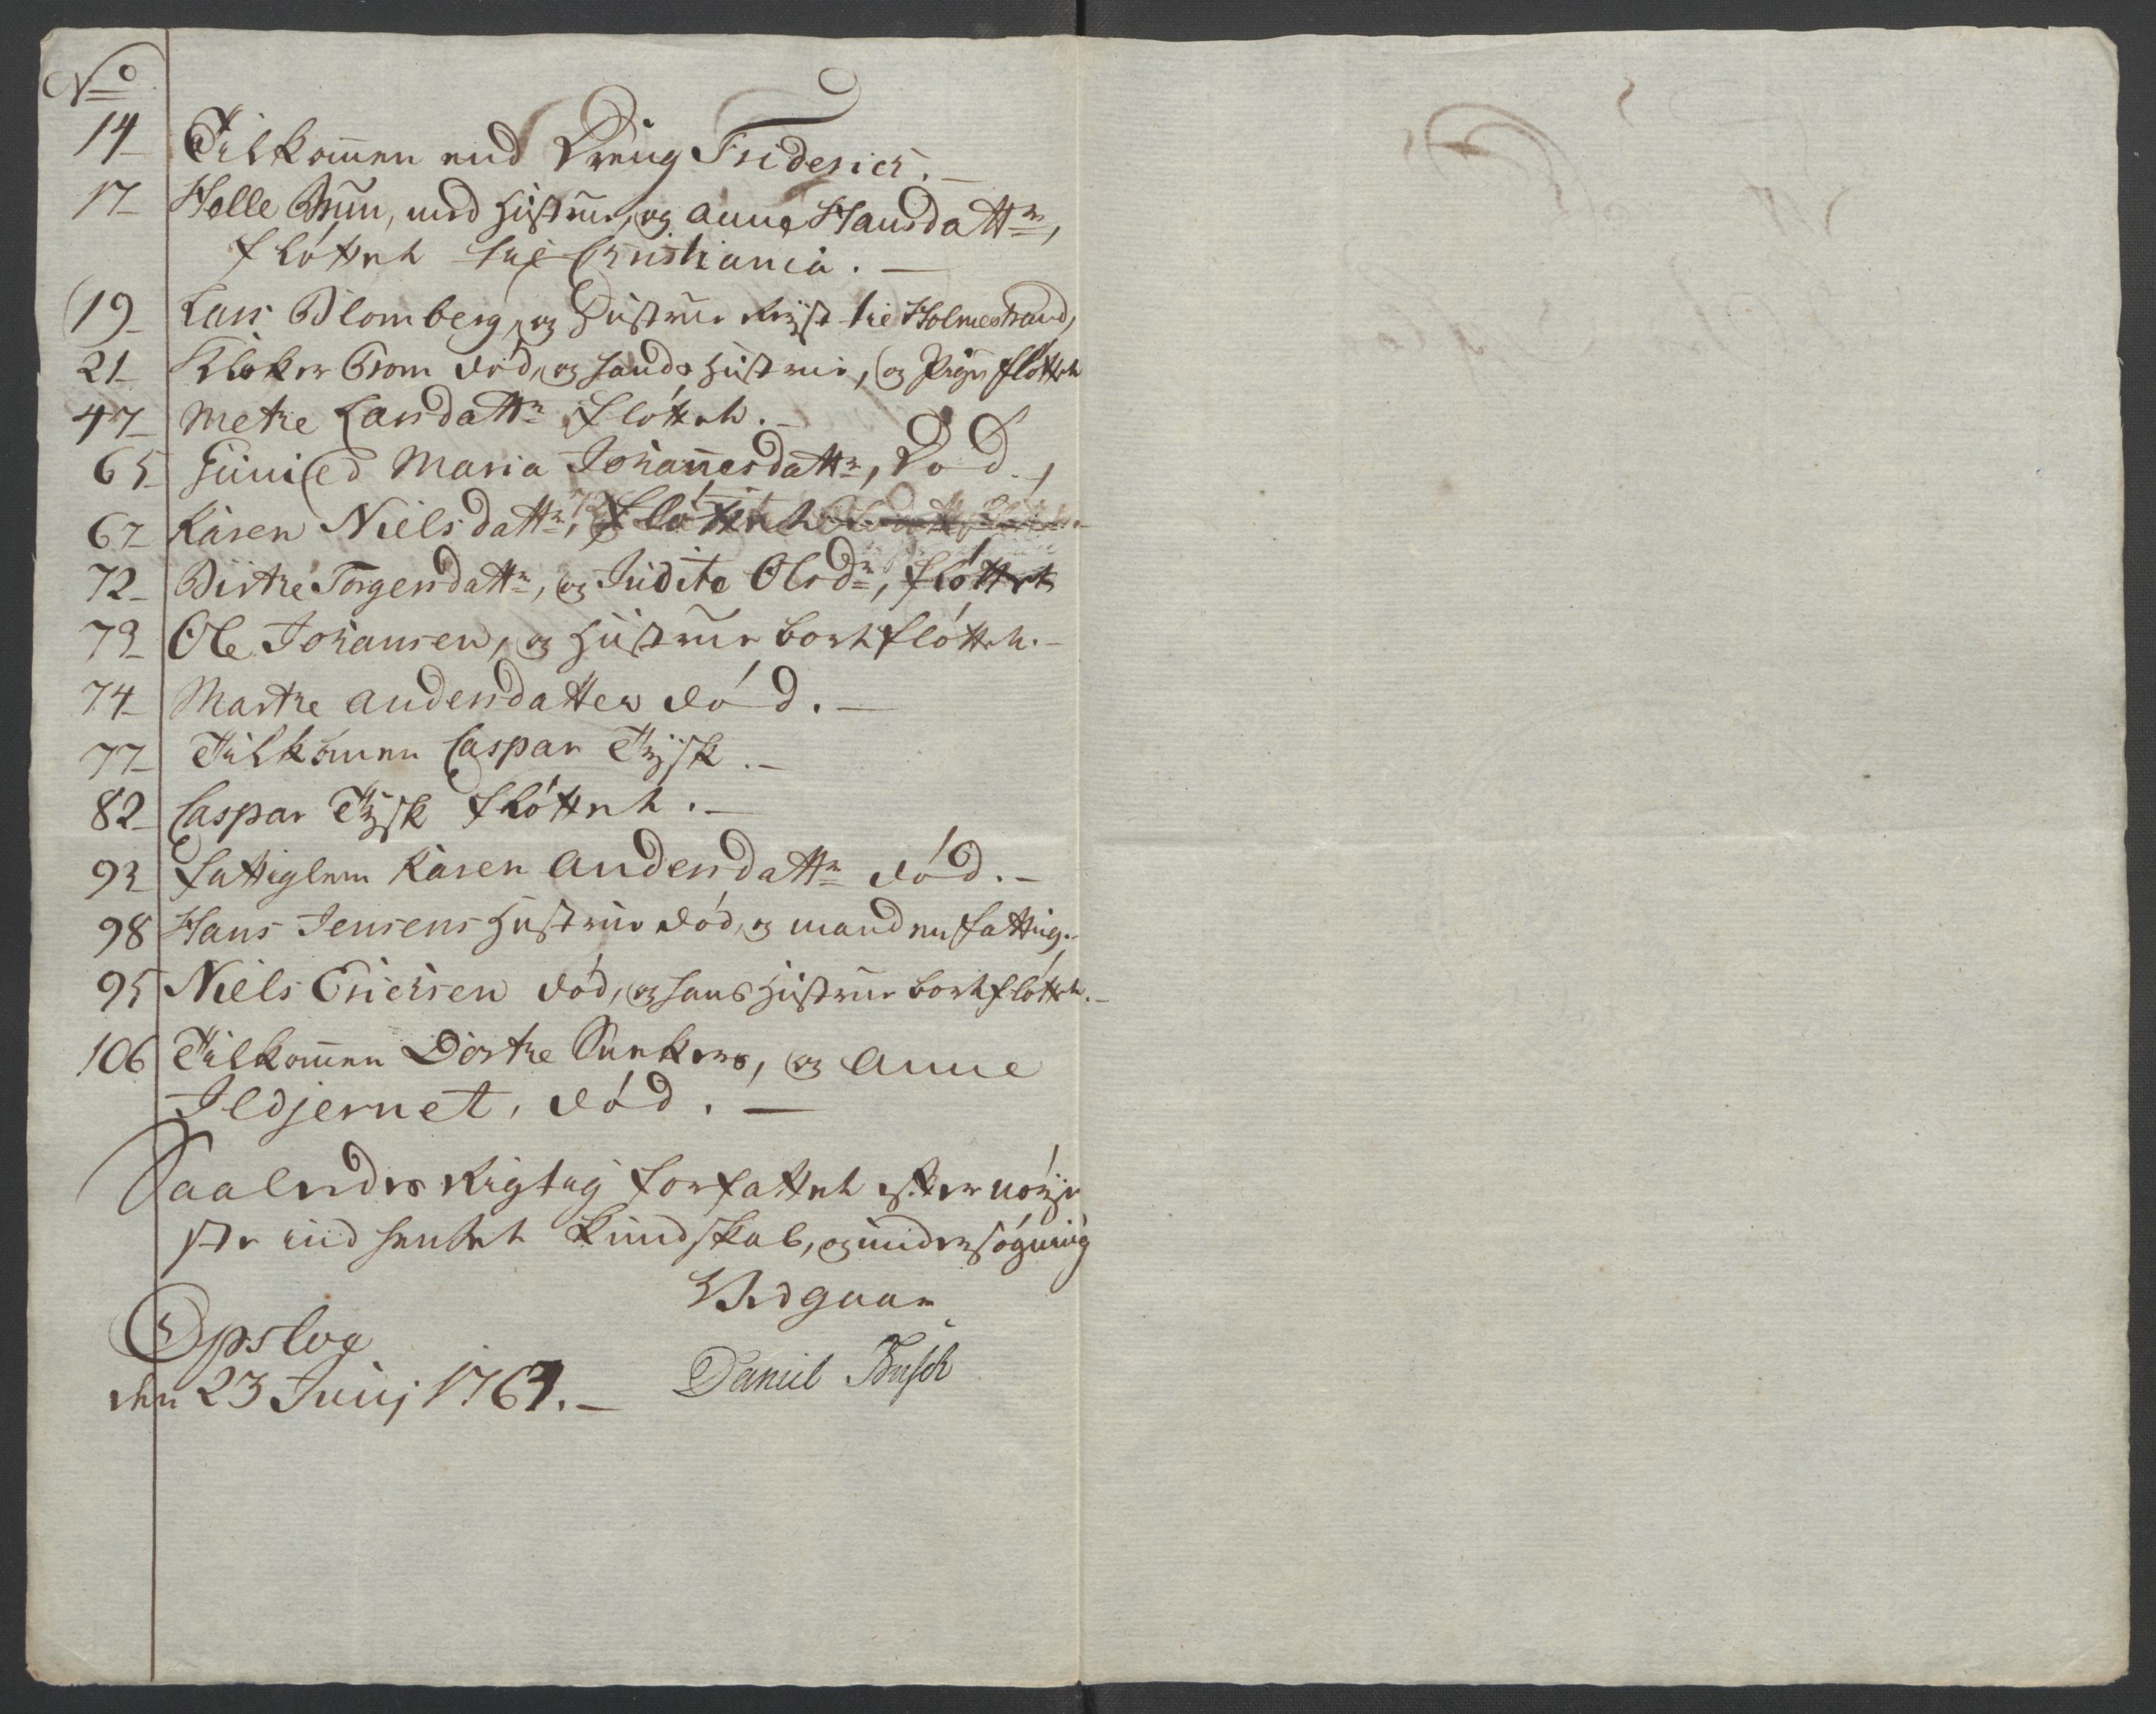 No
14 Tilkommen end Dreng Friderich.
17 Helle Brun, med Hustrue, og Anne Hansdattr,
fløttet til Christiania.
19 Lars Blomberg, og Hustrue Rejst til Holmestrand,
21 Kloker Grom død, og hands Hustrue, og Pige fløttet
47 Methe Larsdattr fløttet.
65 Gunild Maria Johannesdattr, Død.
67 Karen Nielsdattr, fløttet
72 Birthe Torgersdattr, og Judita Olsdr, fløttet
73 Ole Johansen, og Hustrue bortfløttet.
74 Marthe Andersdatter død.
77 Tilkomen Caspar Tysk.
82 Caspar Tysk fløttet.
93 Fattiglem Karen Andersdattr død.
98 Hans Jensens Hustrue død, og manden fattig.
95 Niels Erichsen død, og hans Hustrue bortfløttet.
106 Tilkommen Dorthe Sunkers, og Anne
Ildjernet, død.
Saaledes Rigtig forfattet efter nøyje
ste indhentet Kundskab, og undersøgning
Vedgaar
Opsloe
den 23 Junij 1764.
Daniel Busch